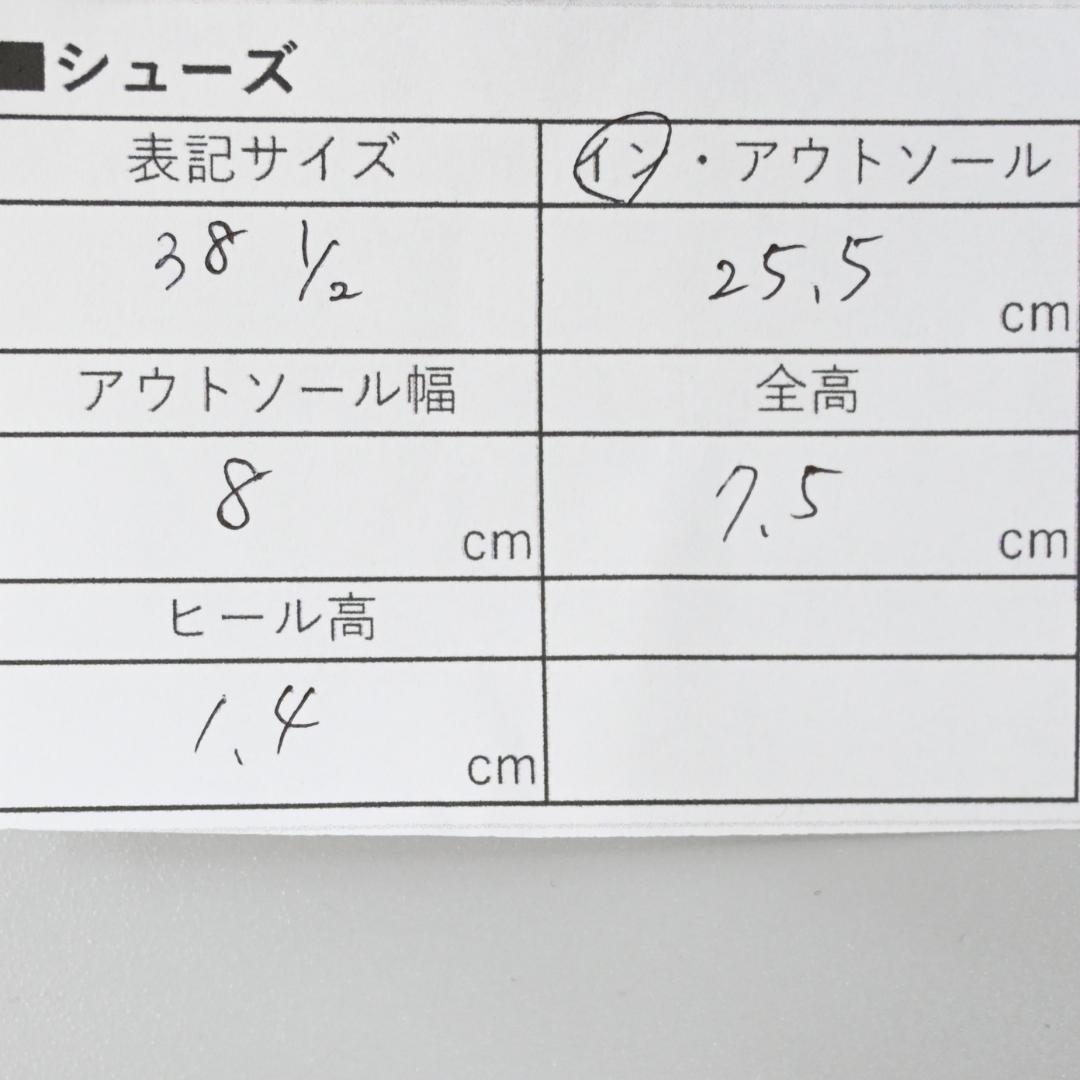 ■シューズ
表記サイズ
イン・アウトソール
38 1/2
25.5 cm
アウトソール幅
全高
8 cm
7.5 cm
ヒール高
1.4 cm